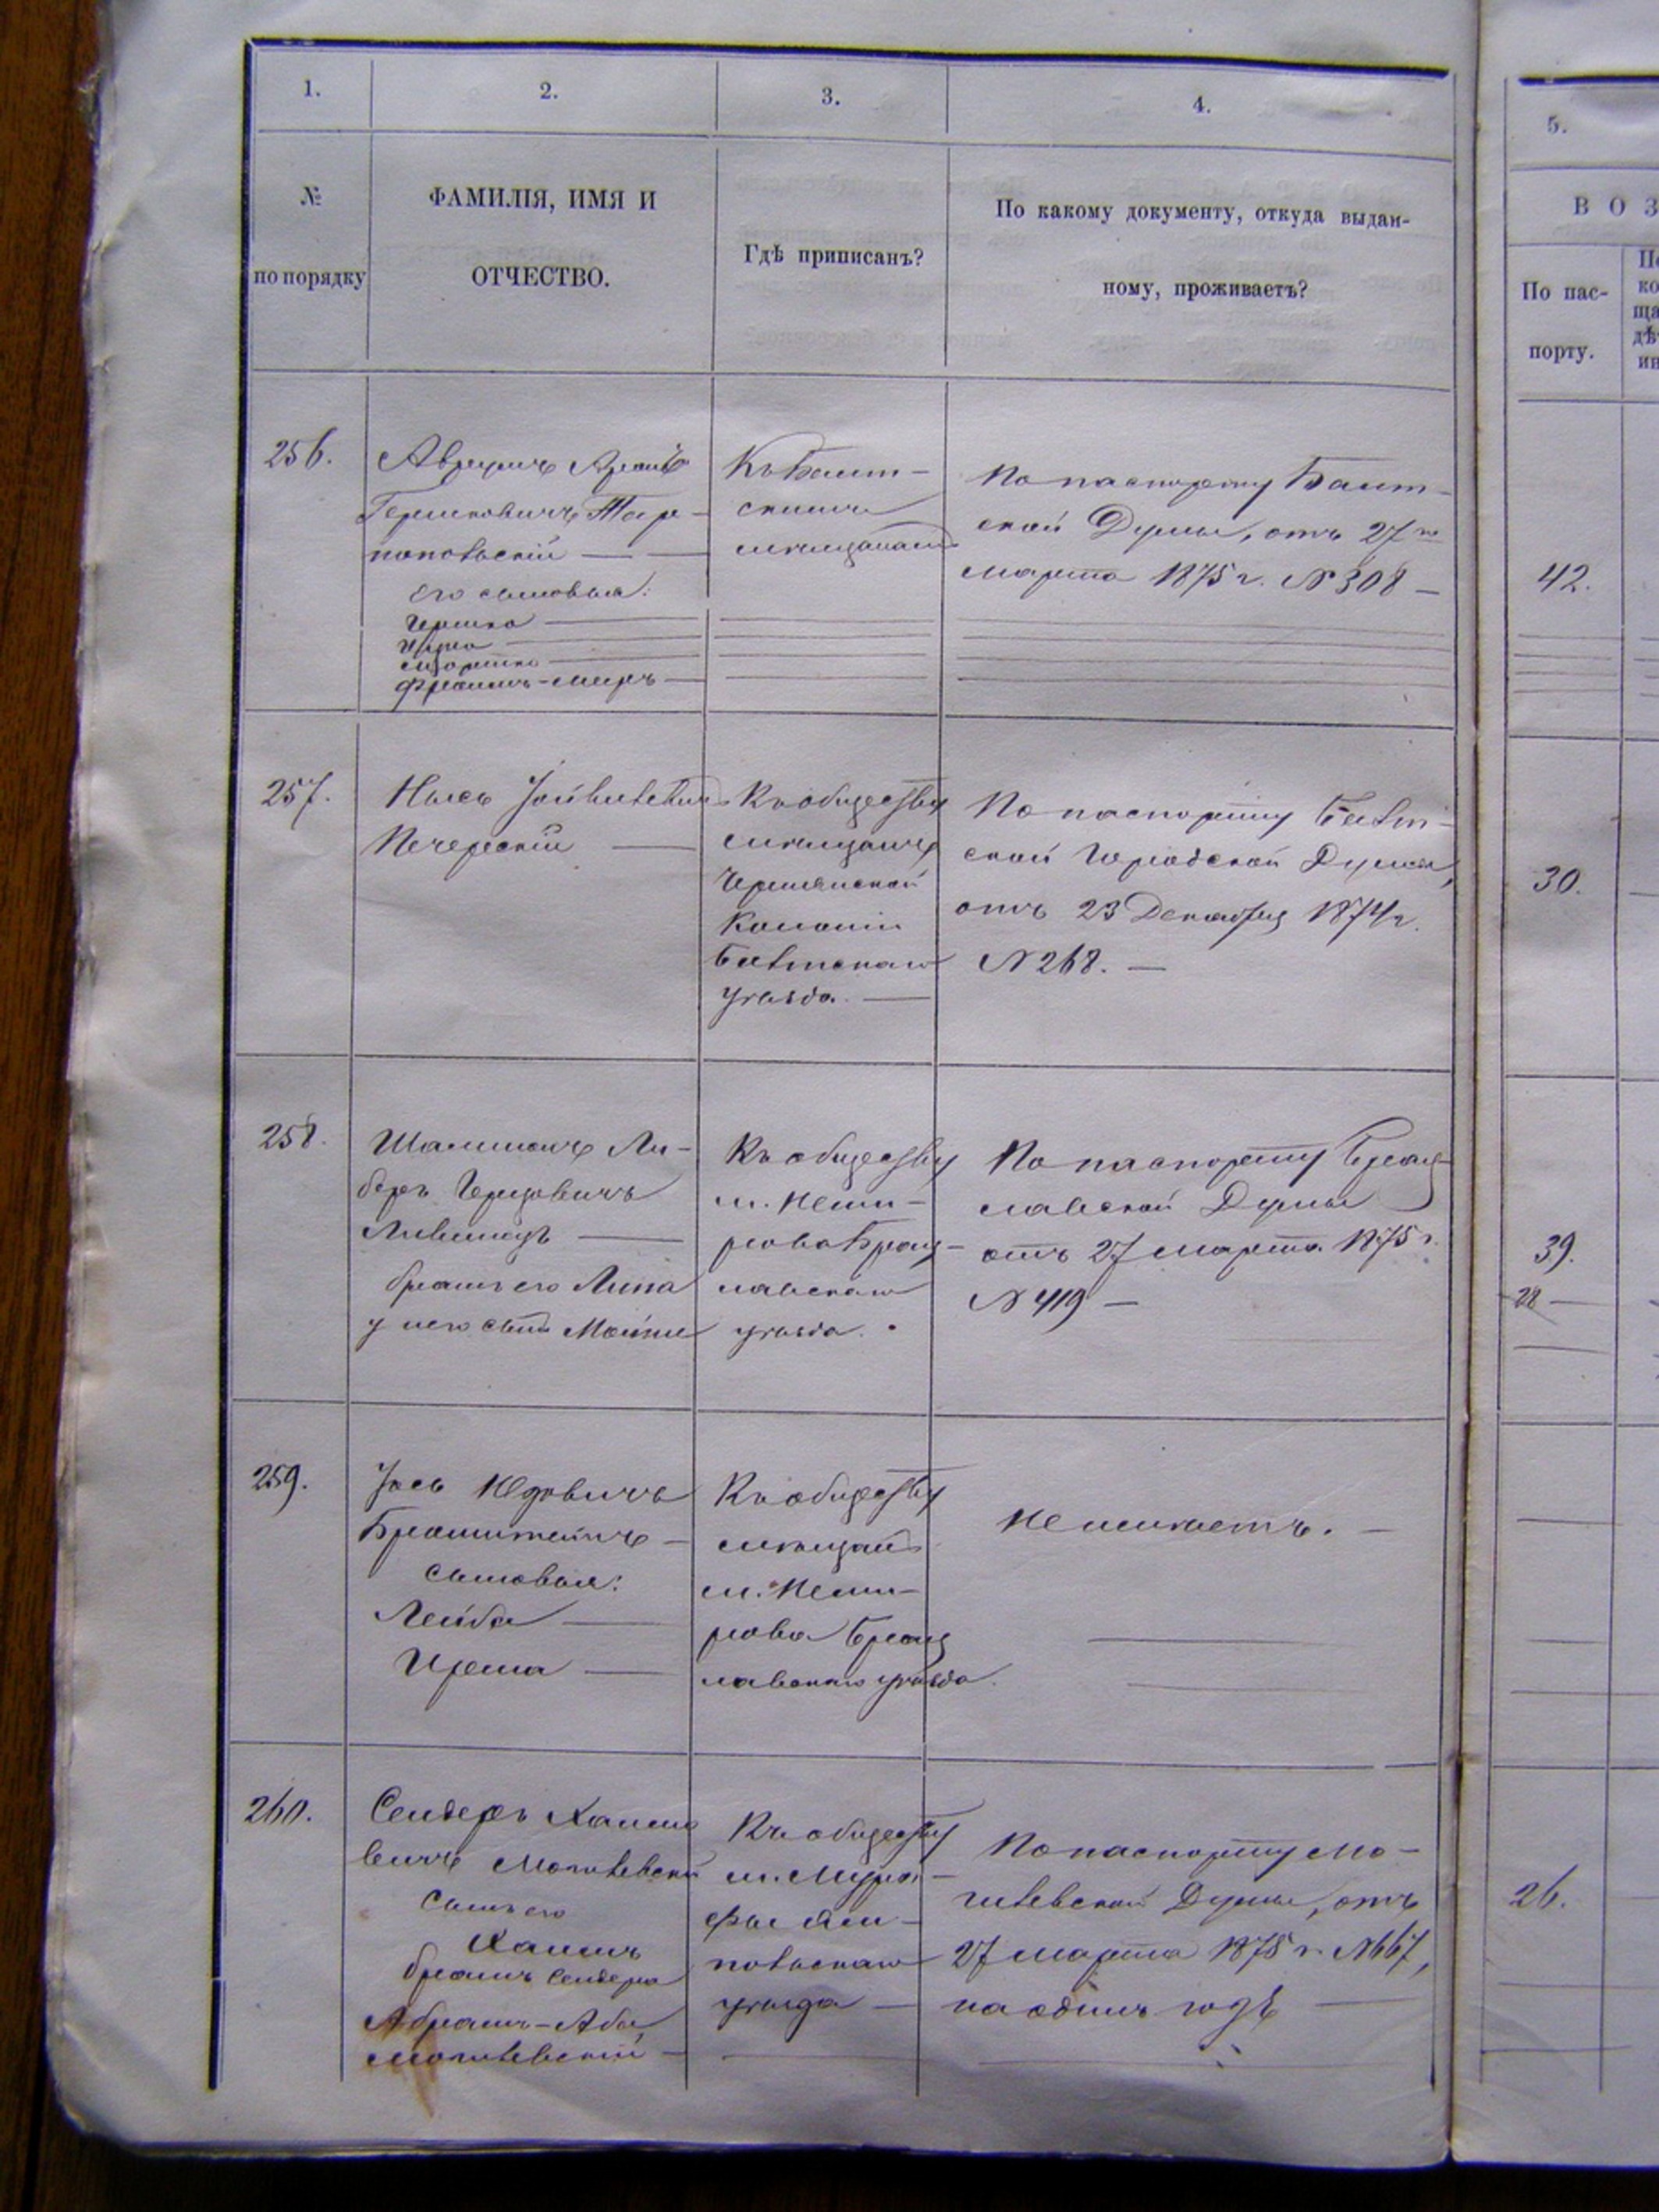 1.
2.
3.
4.
5.
№
по порядку
ФАМИЛІЯ, ИМЯ И
ОТЧЕСТВО.
Гдѣ приписанъ?
По какому документу, откуда выдан-
ному, проживаетъ?
В О З
По пас-
порту.
256.
Авруумъ
Гершковичъ Тар-
напольскій
его сыновья:
Гершко
Мошко
Къ Балт-
скимъ
мѣщанамъ
По паспорту Балт-
ской Думы, отъ 27го
Марта 1875 г. № 308 —
42.
257.
Нысь
Печерскій
Къ обществу
мѣщанъ
колоніи
Балтскаго
уѣзда.
По паспорту Балт-
ской Городской Думы,
отъ 23 Декабря 1874 г.
№ 268. —
30.
258.
Либеръ Герцовичъ
братъ его Липа
у него сынъ Мойше
Къ обществу
м. Неми-
рова Брац-
лавскаго
уѣзда.
По паспорту Брац-
лавской Думы
отъ 27 Марта 1875 г.
№ 419 —
39.
28
259.
Іось Юдковичъ
Бронштейнъ —
сыновья:
Лейба
Срема
Къ обществу
мѣщанъ
м. Неми-
рова Брац
лавскаго уѣзда.
Не имѣетъ. —
260.
Сендеръ Хаимо
вичъ Могилевскій
Сынъ его
Хаимъ
братъ Сендера
Абрамъ-Аба
Могилевскій —
Къ обществу
м. Мура-
фы Ям-
польскаго
уѣзда
По паспорту Мо-
гилевской Думы, отъ
27 Марта 1875 г. № 667,
на одинъ годъ
26.